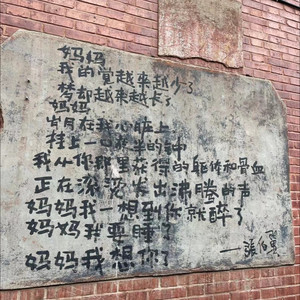 妈妈
我的觉越来越少了
梦却越来越长了
妈妈
岁月在我心脏上
挂上一口孩子的钟
我从你那里获得的躯体和骨血
正在深深发出沸腾的声
妈妈我一想到你就醉了
妈妈我要睡了
妈妈我想你了